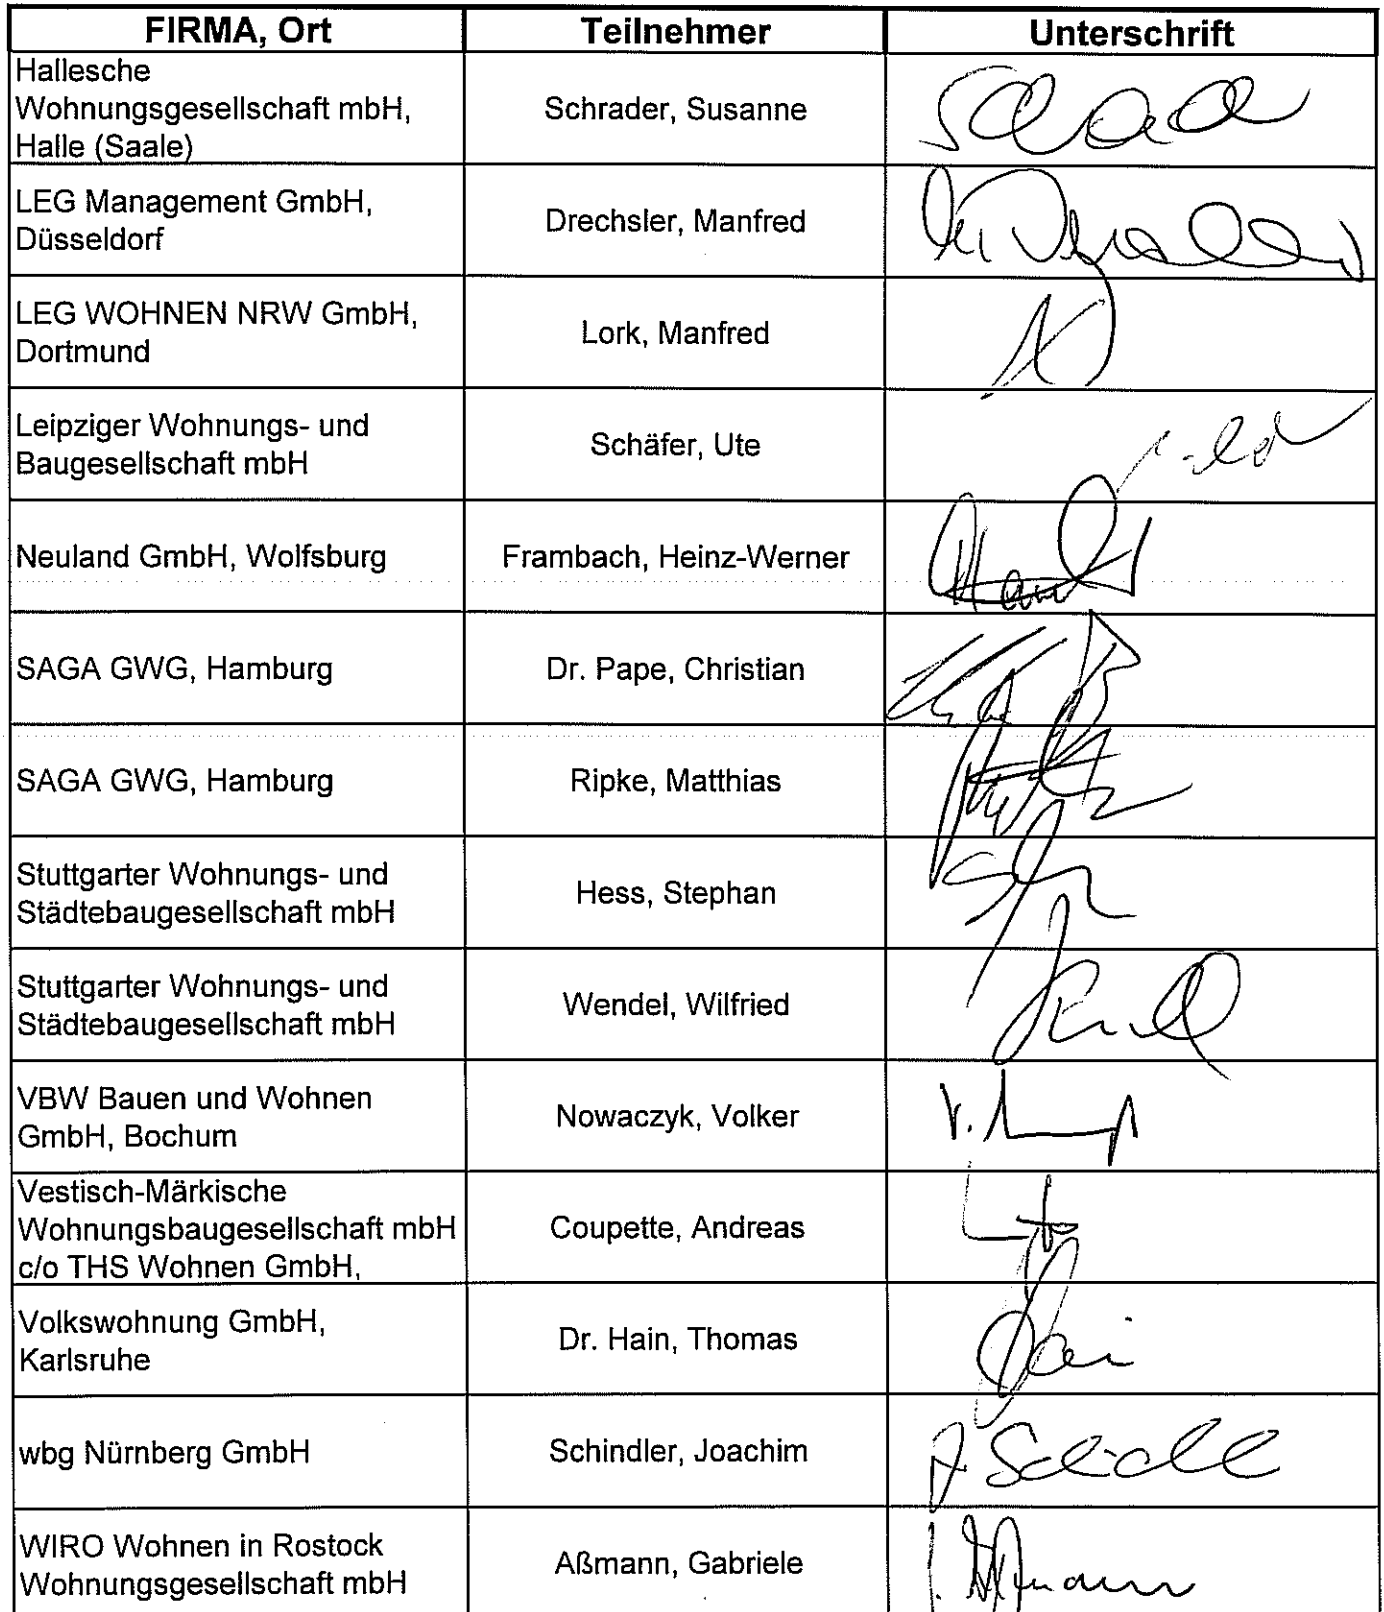 FIRMA, Ort Teilnehmer Unterschrift
Hallesche
Wohnungsgesellschaft mbH,
Halle (Saale)
Schrader, Susanne
LEG Management GmbH,
Düsseldorf
Drechsler, Manfred
LEG WOHNEN NRW GmbH,
Dortmund
Lork, Manfred
Leipziger Wohnungs- und
Baugesellschaft mbH
Schäfer, Ute
Neuland GmbH, Wolfsburg
Frambach, Heinz-Werner
SAGA GWG, Hamburg
Dr. Pape, Christian
SAGA GWG, Hamburg
Ripke, Matthias
Stuttgarter Wohnungs- und
Städtebaugesellschaft mbH
Hess, Stephan
Stuttgarter Wohnungs- und
Städtebaugesellschaft mbH
Wendel, Wilfried
VBW Bauen und Wohnen
GmbH, Bochum
Nowaczyk, Volker
Vestisch-Märkische
Wohnungsbaugesellschaft mbH
c/o THS Wohnen GmbH,
Coupette, Andreas
Volkswohnung GmbH,
Karlsruhe
Dr. Hain, Thomas
wbg Nürnberg GmbH
Schindler, Joachim
WIRO Wohnen in Rostock
Wohnungsgesellschaft mbH
Aßmann, Gabriele